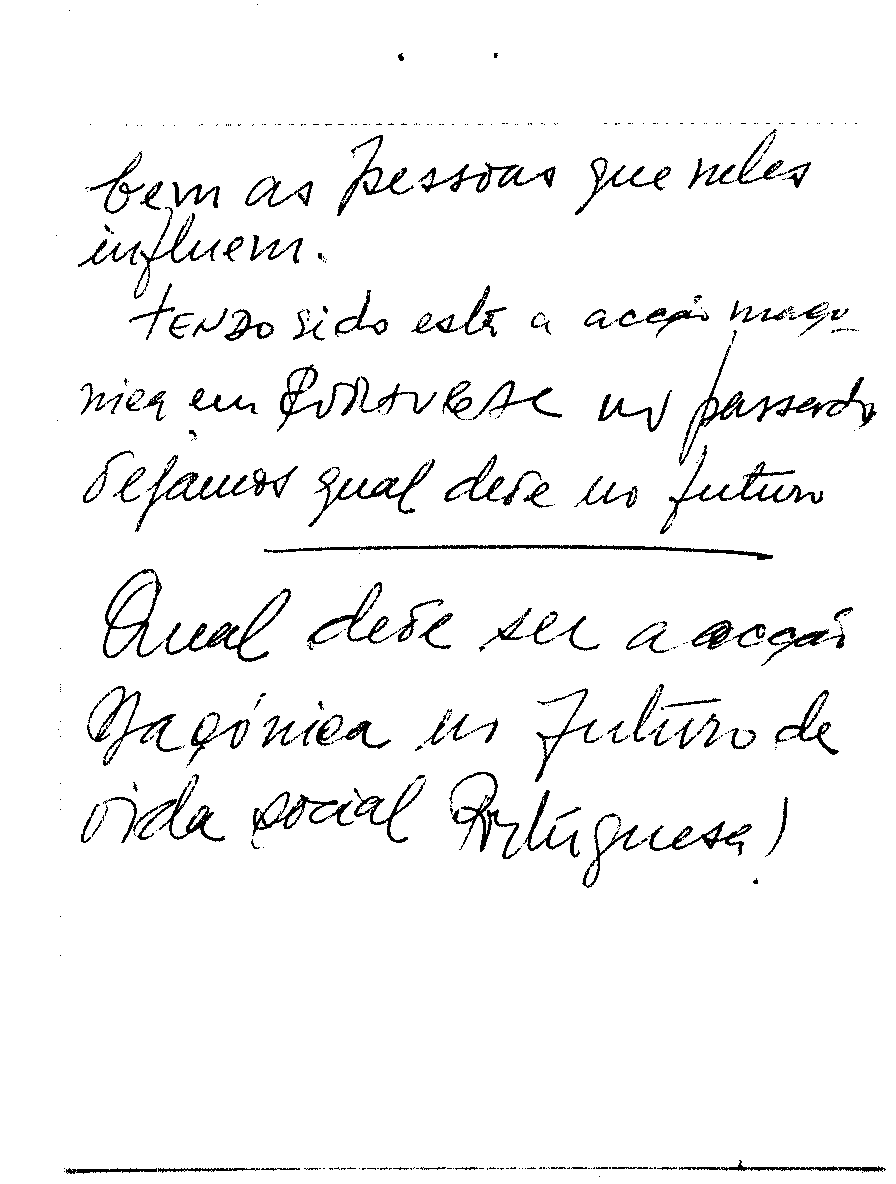 bem as pessoas que neles
influem.
TENDO sido esta a acção maço-
nica em no passado
vejamos qual deve no futuro
Qual deve ser a acção
Maçónica no futuro de
vida social Portuguesa?